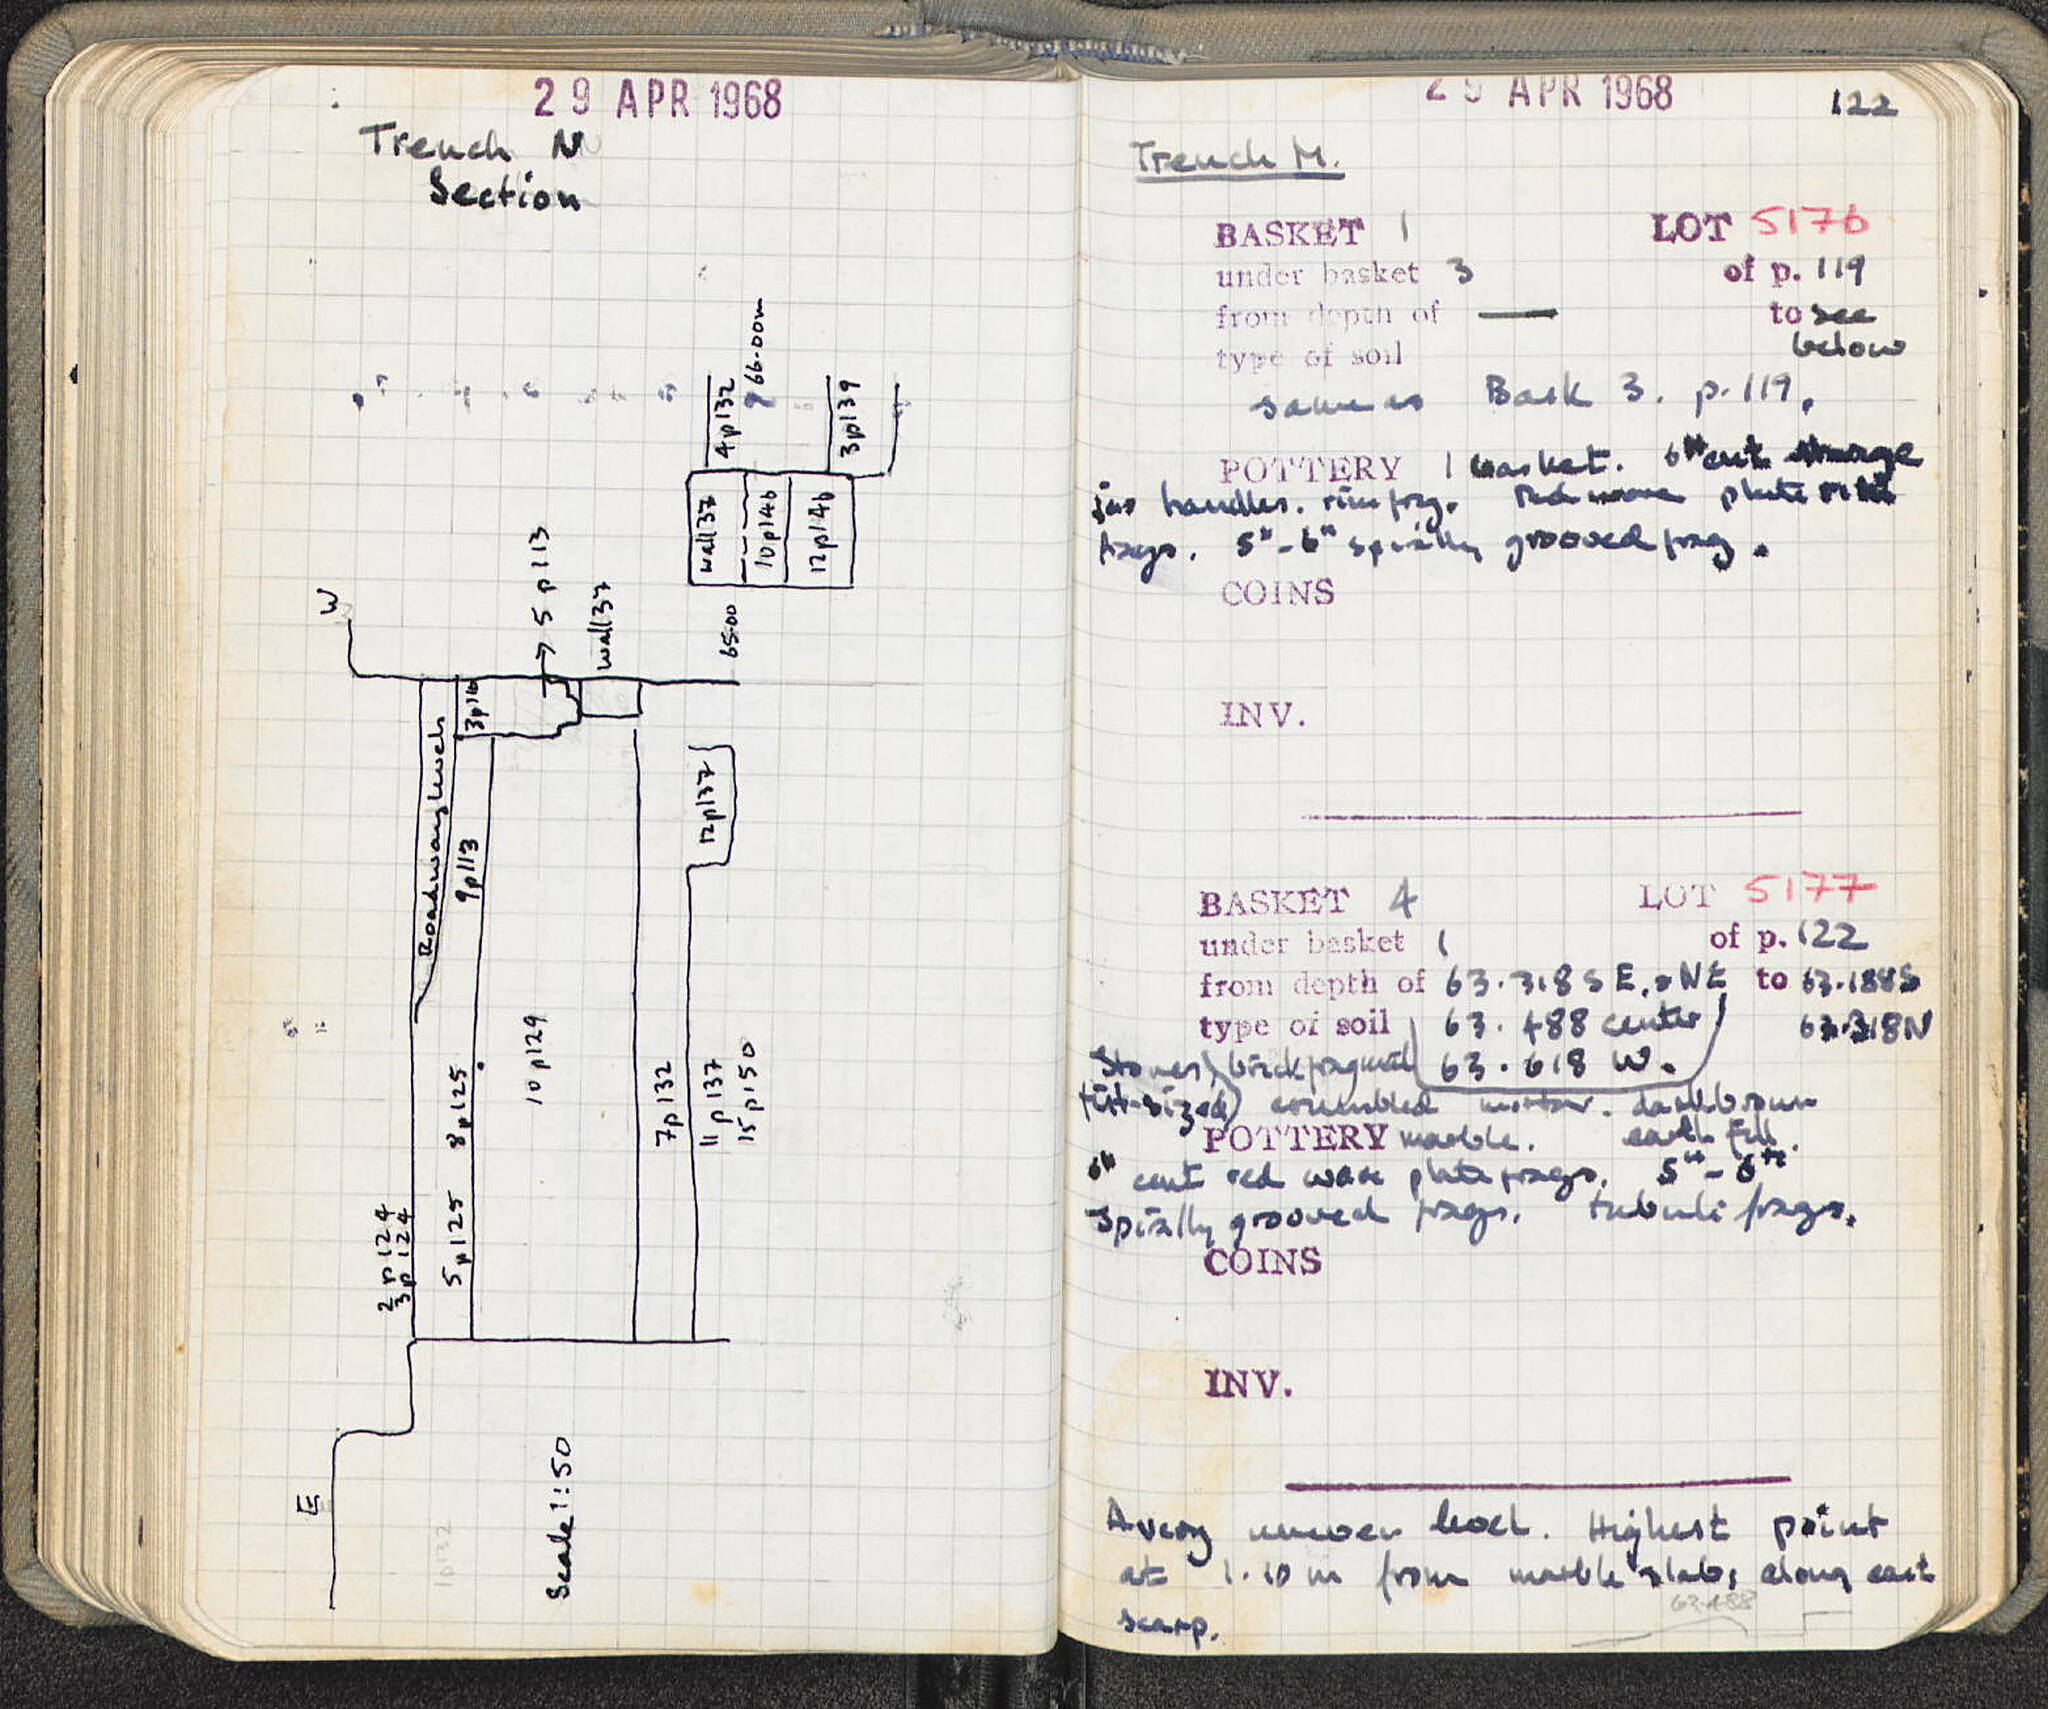 29 APR 1968
Trench N
Section
W
E
Roadway level
3p116
→ 5 p113
wall 37
65.00
4p132
66.00m
3p139
wall 37
10p146
12p146
9p113
10p129
12p137
2 p 124
3p 124
5p125 8p125
7p132
11p137
15p150
Scale 1:50
APR 1968
122
Trench M.
BASKET 1 LOT 5176
under basket 3 of p. 119
from depth of — to see
below
type of soil
same as Bask 3. p. 119.
POTTERY 1 basket. 6th cent storage
jar handles. rim frag. Red ware plate rim
frags. 5th-6th spirally grooved frag.
COINS
INV.
BASKET 4 LOT 5177
under basket 1 of p. 122
from depth of 63.318 S E, & NE to 63.188 S
type of soil 63.488 center 63.318 N
63.618 W.
Stones (fist-sized) brick fragments
crumbled mortar. dark brown
POTTERY marble. earth fill.
6th cent red ware plate frags. 5th-6th
spirally grooved frags. tubuli frags.
COINS
INV.
A very uneven level. Highest point
at 1.10m from marble slabs along east
scarp.
63.488